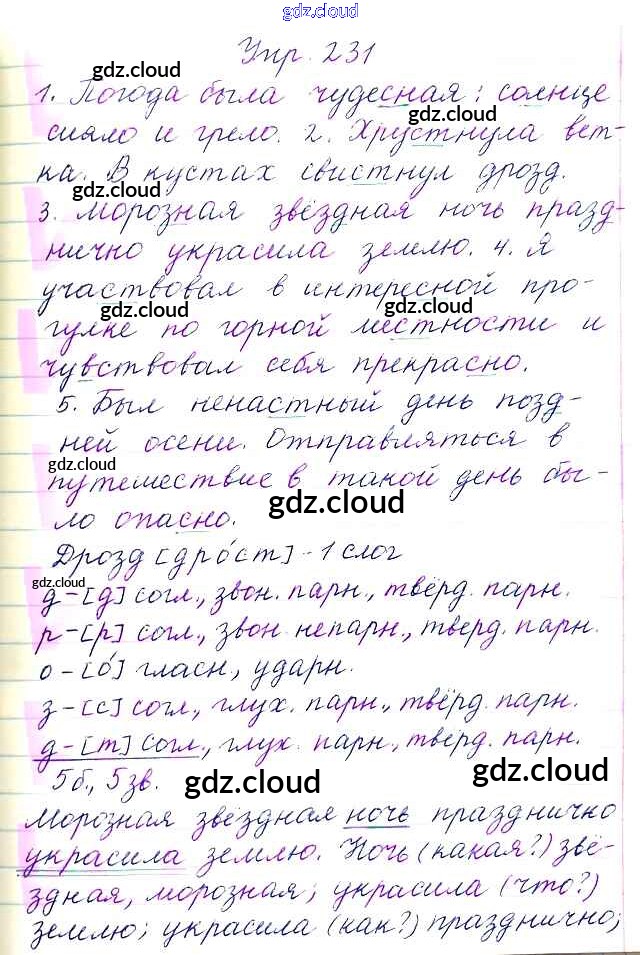 gdz.cloud
Упр. 231
gdz.cloud
1. Погода была чудесная: солнце
gdz.cloud gdz.cloud
сияло и грело. 2. Хрустнула вет-
ка. В кустах свистнул дрозд.
gdz.cloud
3. Морозная звёздная ночь празд-
нично украсила землю. 4. Я
участвовал в интересной про-
gdz.cloud gdz.cloud
гулке по горной местности и
чувствовал себя прекрасно.
5. Был ненастный день позд-
ней осени. Отправляться в
gdz.cloud
путешествие в такой день бы-
gdz.cloud
ло опасно.
Дрозд [дро́ст] - 1 слог
gdz.cloud
д - [д] согл., звон. парн., твёрд. парн.
р - [р] согл., звон. непарн., тверд. парн.
о - [о́] гласн., ударн.
з - [с] согл., глух. парн., твёрд. парн.
д - [т] согл., глух. парн., тверд. парн.
5 б., 5 зв.
gdz.cloud gdz.cloud
Морозная звёздная ночь празднично
украсила землю. Ночь (какая?) звё-
здная, морозная; украсила (что?)
землю; украсила (как?) празднично;